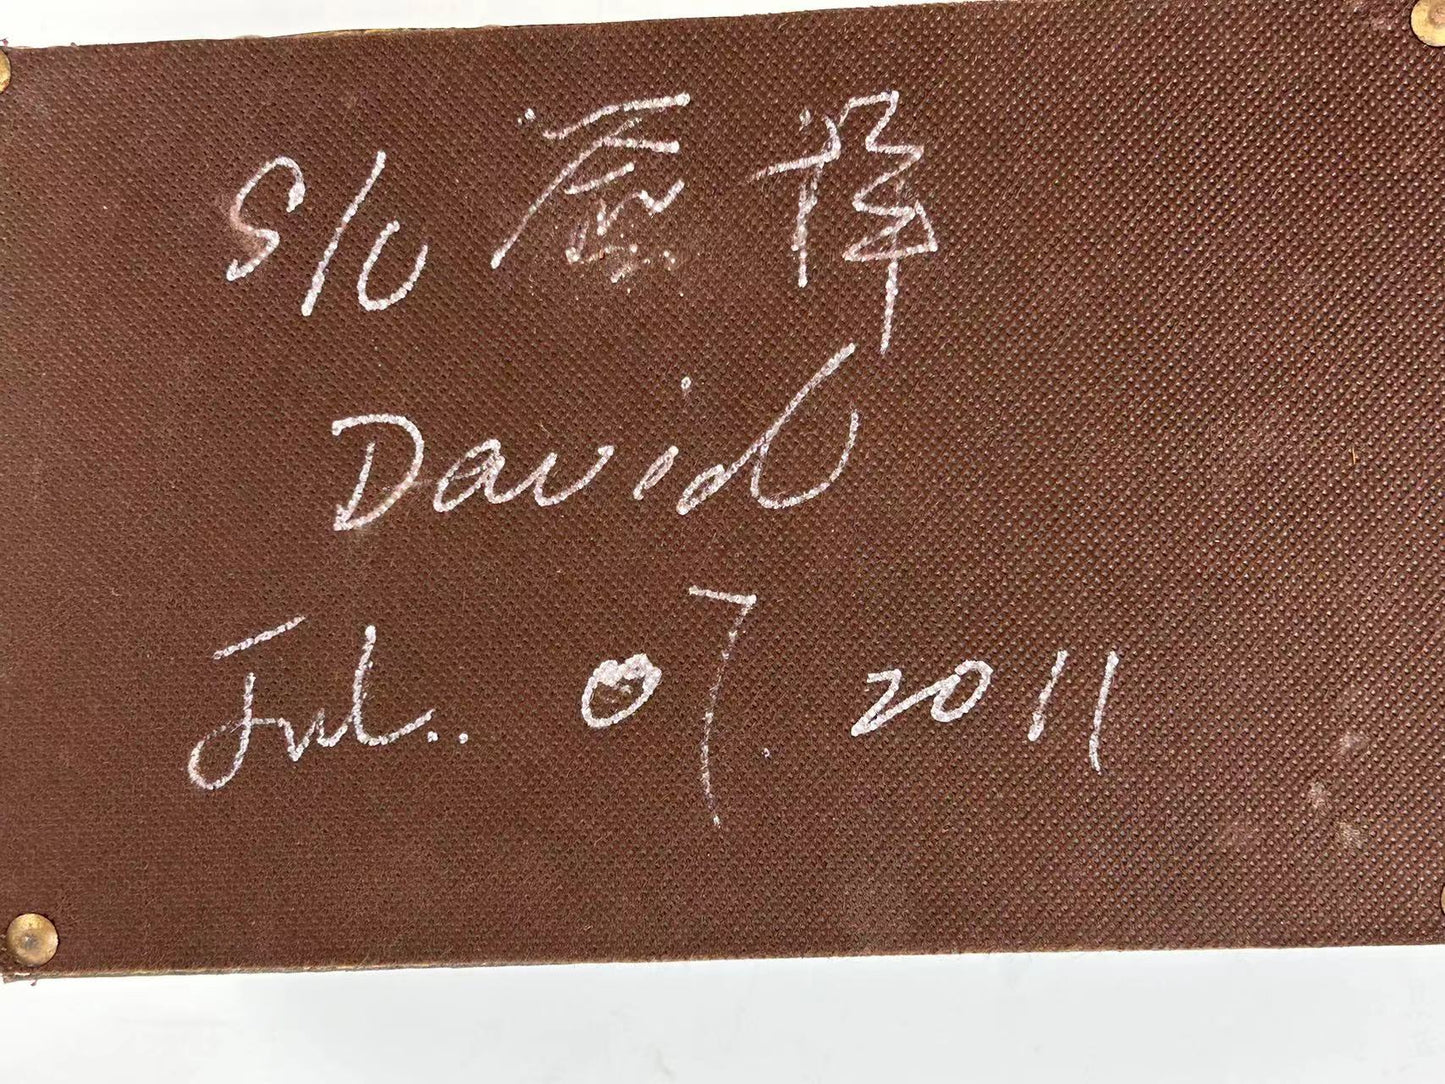 S/U
David
Jul.. 07. 2011